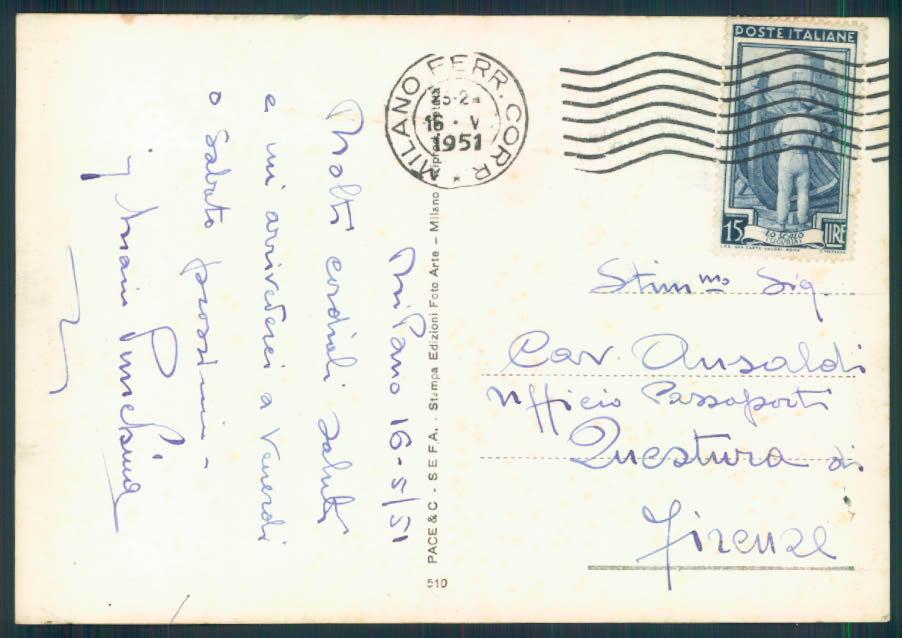 Milano 16-5/51
Molti cordiali saluti
e mi arrivederci a Venerdi
o Sabato prossimi -
Mario
MILANO FERR. CORR.
16 · V
1951
POSTE ITALIANE
15 LIRE
LO SCALO
(LIGURIA)
Stim.mo Sig.
Cav. Ansaldi
Ufficio Passaporti
Questura di
Firenze
PACE & C - S E F A. - Stampa Edizioni Foto Arte - Milano
510